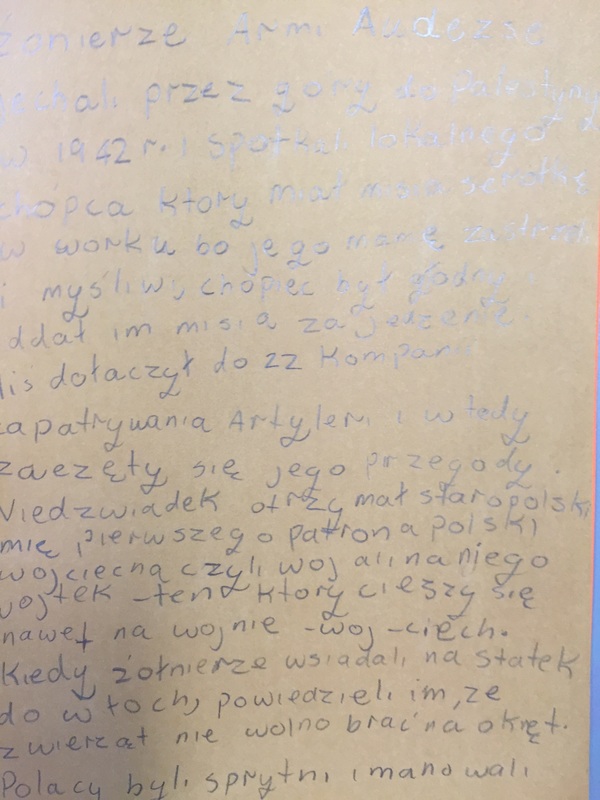 żonierze Armi Audezse
jechali przez gory do Palestyny
w 1942 r. i spotkali lokalnego
chopca ktory miał misia sierotkę
w worku bo jego mamę zastrzeli
i myśliwi, chopiec był głodny i
ddał im misia za jedzenie.
is dołaczył do 22 Kompani
zapatrywania Artyleri i wtedy
zaczęty się jego przegody.
Niedzwiadek otrzymał staropolski
mię pierwszego patrona polski
wojciecha czyli woj ali na niego
wojtek - ten ktory cieszy się
nawet na wojnie - woj - ciech.
Kiedy żołnierze wsiadali na statek
do włoch, powiedzieli im, ze
zwierzat nie wolno brać na okręt.
Polacy byli sprytni i manowali